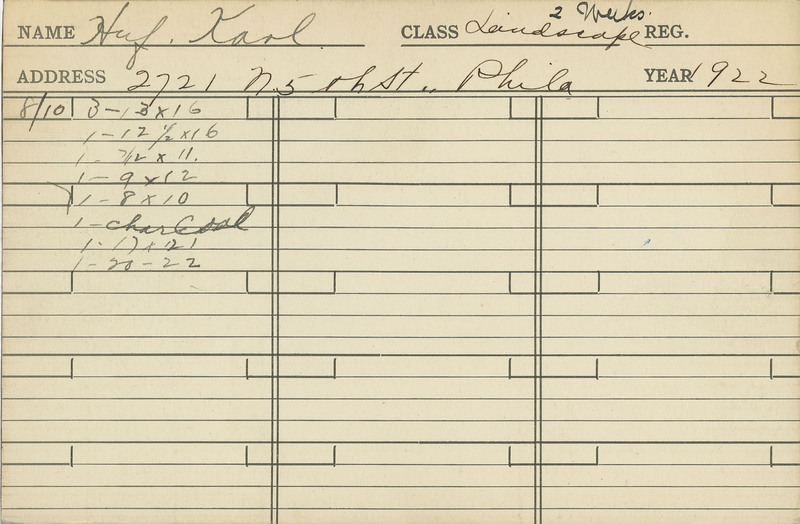 NAME Huf. Karl. CLASS Landscape 2 Weeks. REG.
ADDRESS 2721 N. 5th St., Phila YEAR 1922
8/10 3-13 x 16
1-12 1/2 x 16
1- 7 1/2 x 11.
1-9 x 12
1-8 x 10
1-Charcoal
1-17 x 21
1-20-22